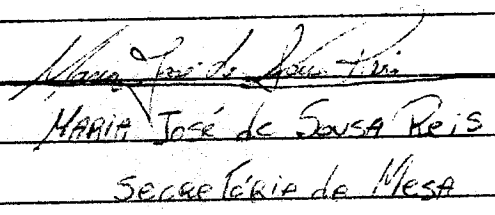 Maria José de Sousa Reis
MARIA José de SousA Reis
Secretária de MesA